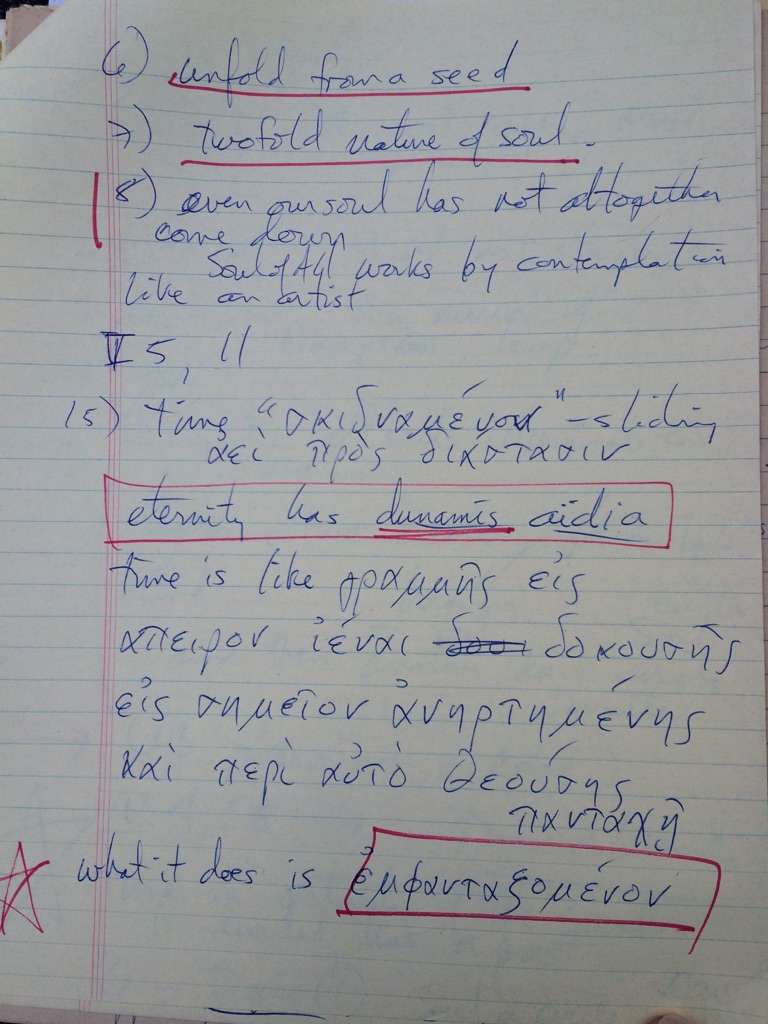 6) unfold from a seed
7) twofold nature of soul.
8) even our soul has not altogether
come down
Soul of All works by contemplation
like an artist
V 5, 11
15) time "σκιδναμένου" - sliding
αεὶ πρὸς διάστασιν
eternity has dunamis aïdia
time is like γραμμῆς εἰς
απειρον ἰέναι δοκουσῆς
εἰς σημεῖον ἀνηρτημένης
καὶ περὶ αὐτὸ θεούσης
πανταχῇ
what it does is ἐμφανταζομένον